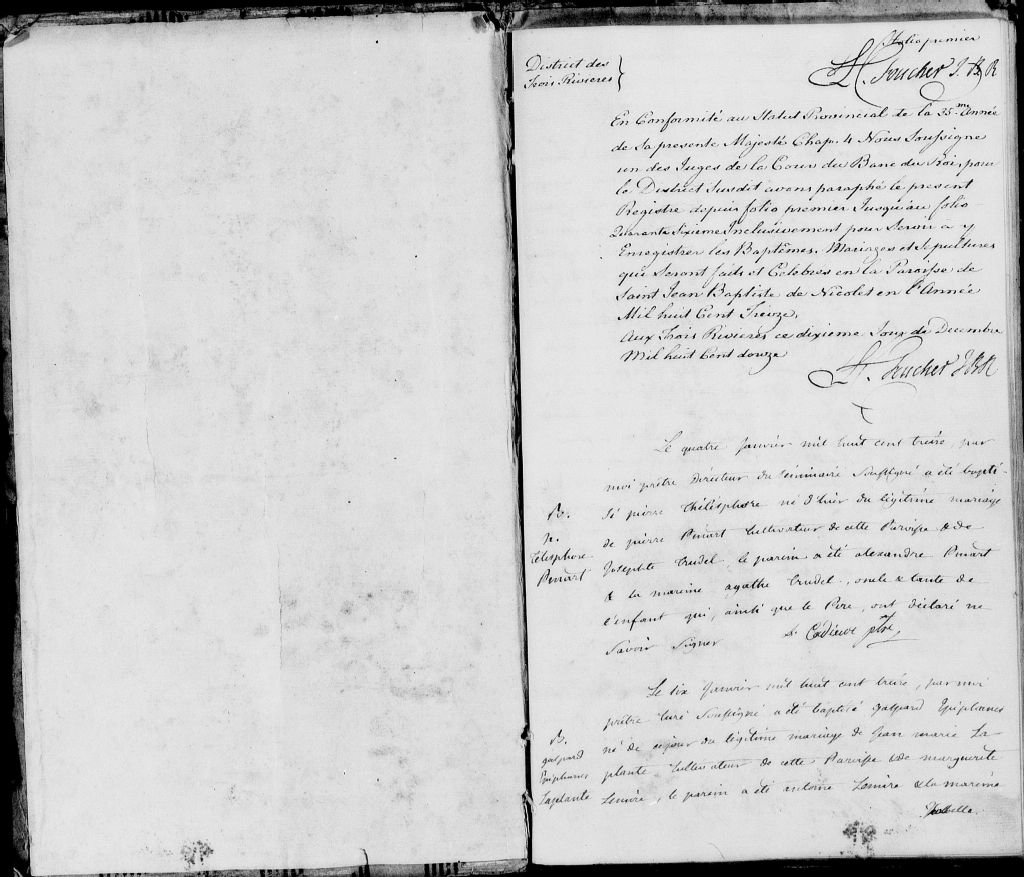 folio premier
District des
Trois Rivieres }
L. C. Foucher J. B. R
En Conformité au Statut Provincial de la 35.me Année
de Sa presente Majesté Chap. 4 Nous Soussigne
un des Juges de la Cour du Banc du Roi, pour
le District Susdit avons paraphé le present
Registre depuis folio premier Jusqu'au folio
Quarante Sixieme Inclusivement pour Servir a y
Enregistrer les Baptêmes, Mariages et Sepultures
qui Seront faits et Celebres en la Paroisse de
Saint Jean Baptiste de Nicolet en l'Année
Mil huit Cent Treize,
Aux Trois Rivieres ce dixieme Jour de Decembre
Mil huit Cent douze
L. C. Foucher J B R
Le quatre Janvier mil huit cent treize, par
moi prêtre Directeur du Séminaire Soussigné a été bapti-
sé pierre Thélésphore né d'hier du légitime mariage
de pierre Pinart Cultivateur de cette Paroisse & de
Josephte Trudel, le parein a été alexandre Pinart
& la mareine agathe Trudel, oncle & tante de
l'enfant qui, ainsi que le Père, ont déclaré ne
Savoir Signer
Cadieux ptre,
B.
télésphore
Pinart
Le Six Janvier mil huit cent treize, par moi
prêtre Curé Soussigné a été baptisé gaspard Epiphanes
né de ce jour du légitime mariage de Jean marie La
plante Cultivateur de cette Paroisse & de marguerite
Lemire, le parein a été antoine Lemire & la mareine
Isabelle
B.
gaspard
Epiphanes
Laplante